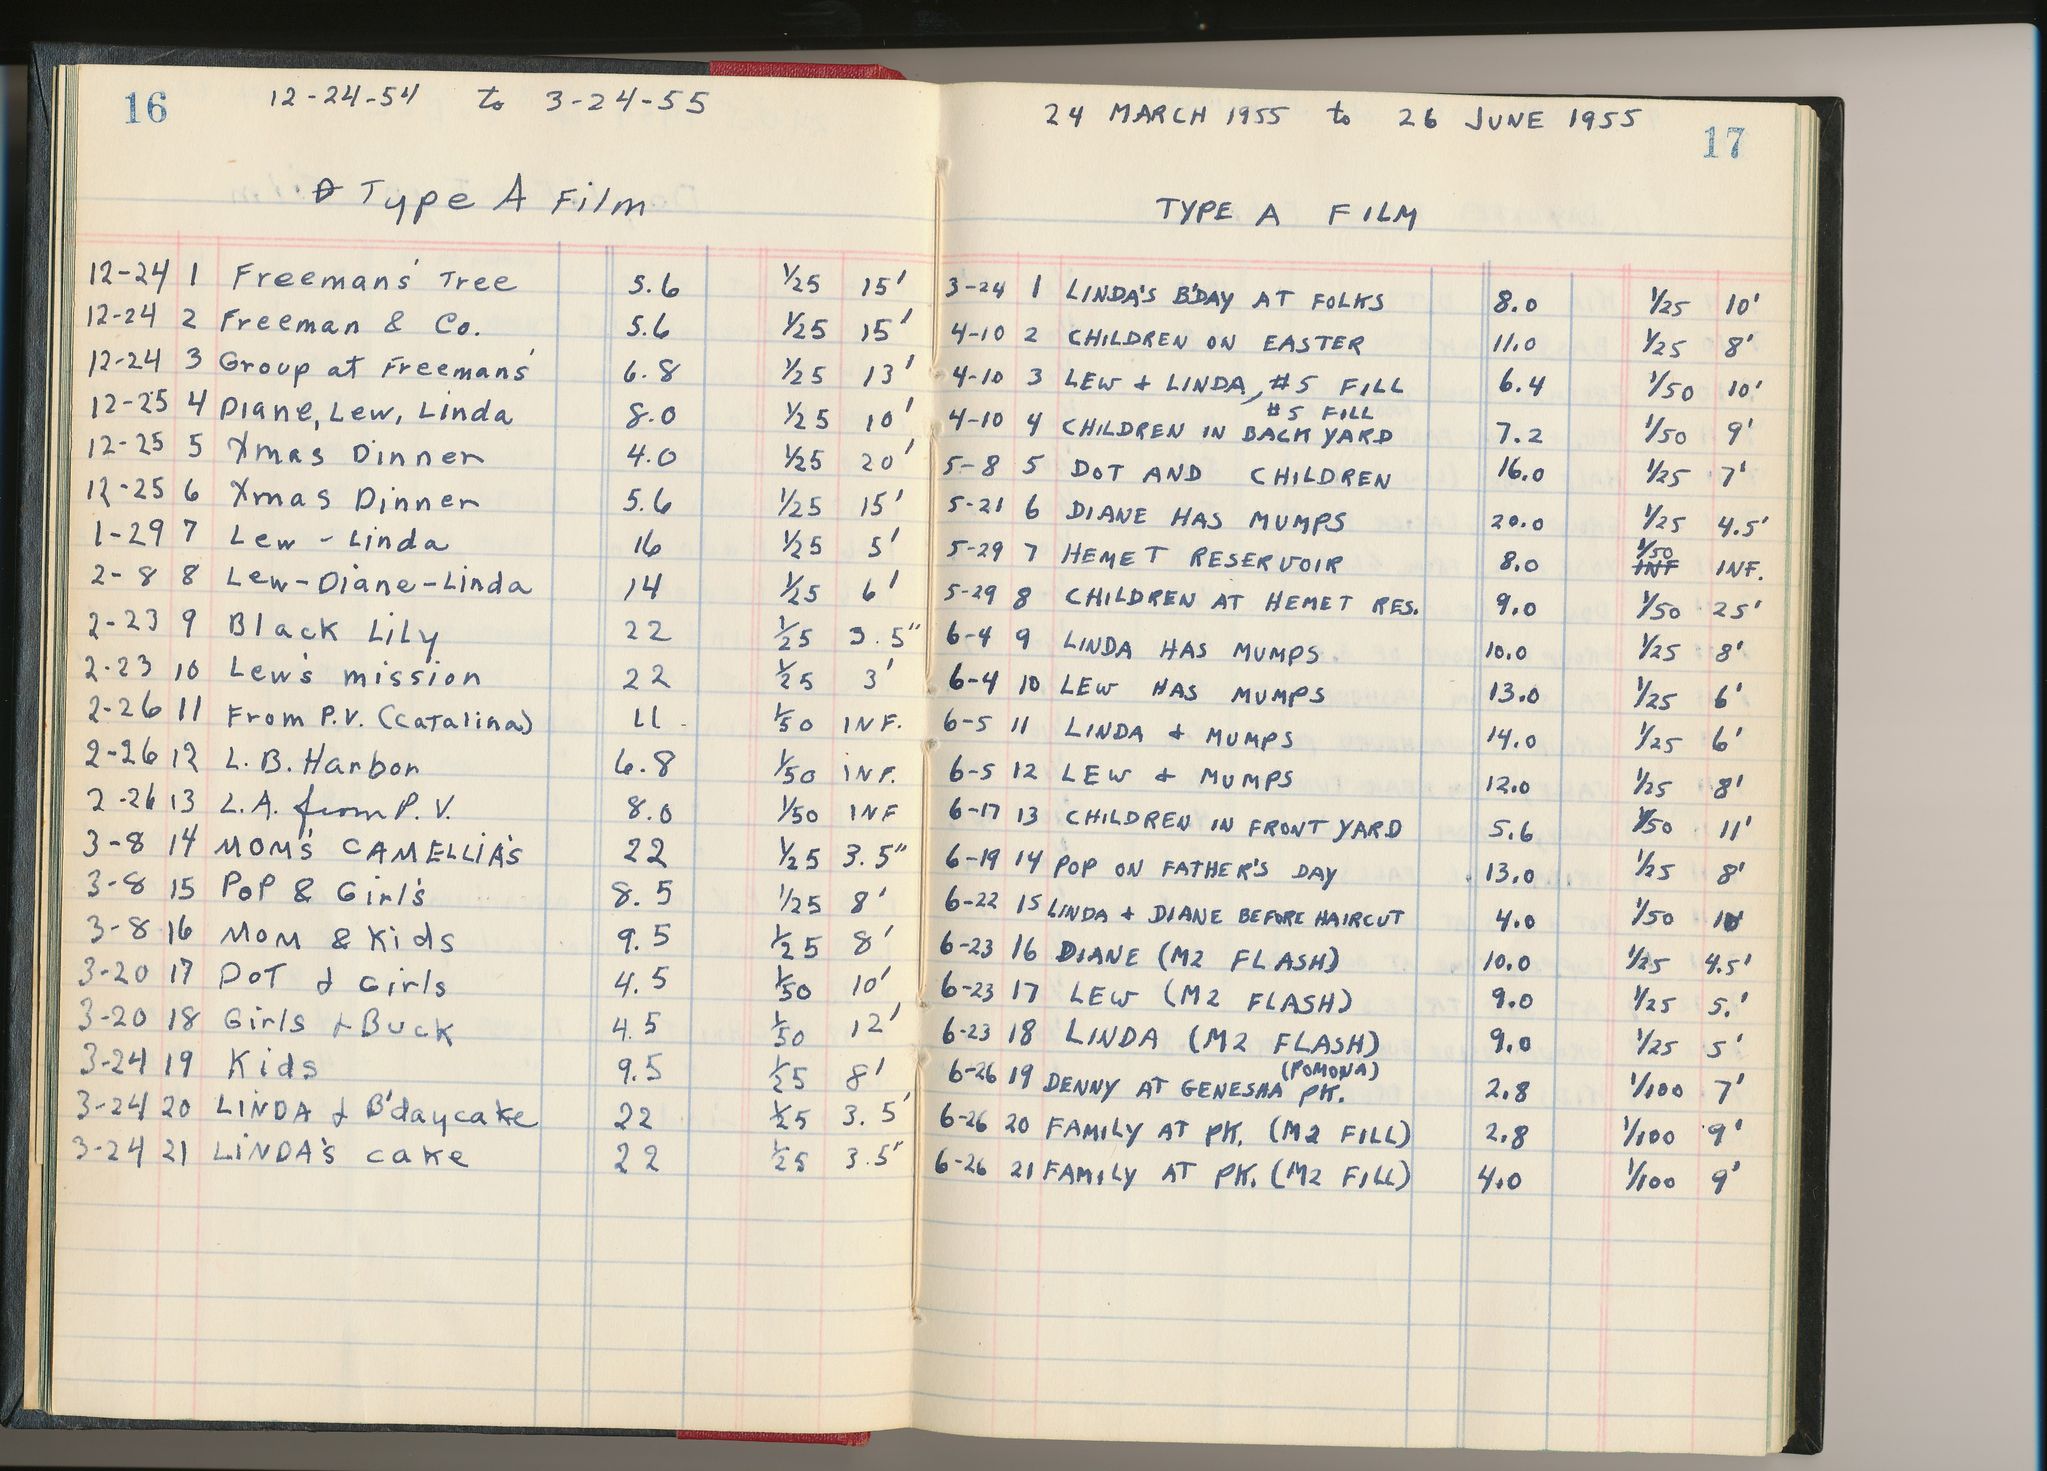 16
12-24-54 to 3-24-55
Type A Film
12-24 1 Freeman's Tree 5.6 1/25 15'
12-24 2 Freeman & Co. 5.6 1/25 15'
12-24 3 Group at Freeman's 6.8 1/25 13'
12-25 4 Diane, Lew, Linda 8.0 1/25 10'
12-25 5 Xmas Dinner 4.0 1/25 20'
12-25 6 Xmas Dinner 5.6 1/25 15'
1-29 7 Lew - Linda 16 1/25 5'
2-8 8 Lew-Diane-Linda 14 1/25 6'
2-23 9 Black Lily 22 1/25 3.5"
2-23 10 Lew's mission 22 1/25 3'
2-26 11 From P.V. (Catalina) 11 1/50 INF.
2-26 12 L.B. Harbor 6.8 1/50 INF.
2-26 13 L.A. from P.V. 8.0 1/50 INF
3-8 14 MOM'S CAMELLIA'S 22 1/25 3.5"
3-8 15 POP & Girl's 8.5 1/25 8'
3-8 16 MOM & Kids 9.5 1/25 8'
3-20 17 DOT & Girls 4.5 1/50 10'
3-20 18 Girls & Buck 4.5 1/50 12'
3-24 19 Kids 9.5 1/25 8'
3-24 20 LINDA & B'day cake 22 1/25 3.5'
3-24 21 LINDA'S cake 22 1/25 3.5'
24 MARCH 1955 to 26 JUNE 1955
17
TYPE A FILM
3-24 1 LINDA'S B'DAY AT FOLKS 8.0 1/25 10'
4-10 2 CHILDREN ON EASTER 11.0 1/25 8'
4-10 3 LEW & LINDA, #5 FILL 6.4 1/50 10'
#5 FILL
4-10 4 CHILDREN IN BACK YARD 7.2 1/50 9'
5-8 5 DOT AND CHILDREN 16.0 1/25 7'
5-21 6 DIANE HAS MUMPS 20.0 1/25 4.5'
5-29 7 HEMET RESERVOIR 8.0 1/50 INF INF.
5-29 8 CHILDREN AT HEMET RES. 9.0 1/50 25'
6-4 9 LINDA HAS MUMPS 10.0 1/25 8'
6-4 10 LEW HAS MUMPS 13.0 1/25 6'
6-5 11 LINDA & MUMPS 14.0 1/25 6'
6-5 12 LEW & MUMPS 12.0 1/25 8'
6-17 13 CHILDREN IN FRONT YARD 5.6 1/50 11'
6-19 14 POP ON FATHER'S DAY 13.0 1/25 8'
6-22 15 LINDA & DIANE BEFORE HAIRCUT 4.0 1/50 10
6-23 16 DIANE (M2 FLASH) 10.0 1/25 4.5'
6-23 17 LEW (M2 FLASH) 9.0 1/25 5.'
6-23 18 LINDA (M2 FLASH) 9.0 1/25 5'
(POMONA)
6-26 19 DENNY AT GENESHA PK. 2.8 1/100 7'
6-26 20 FAMILY AT PK. (M2 FILL) 2.8 1/100 9'
6-26 21 FAMILY AT PK. (M2 FILL) 4.0 1/100 9'